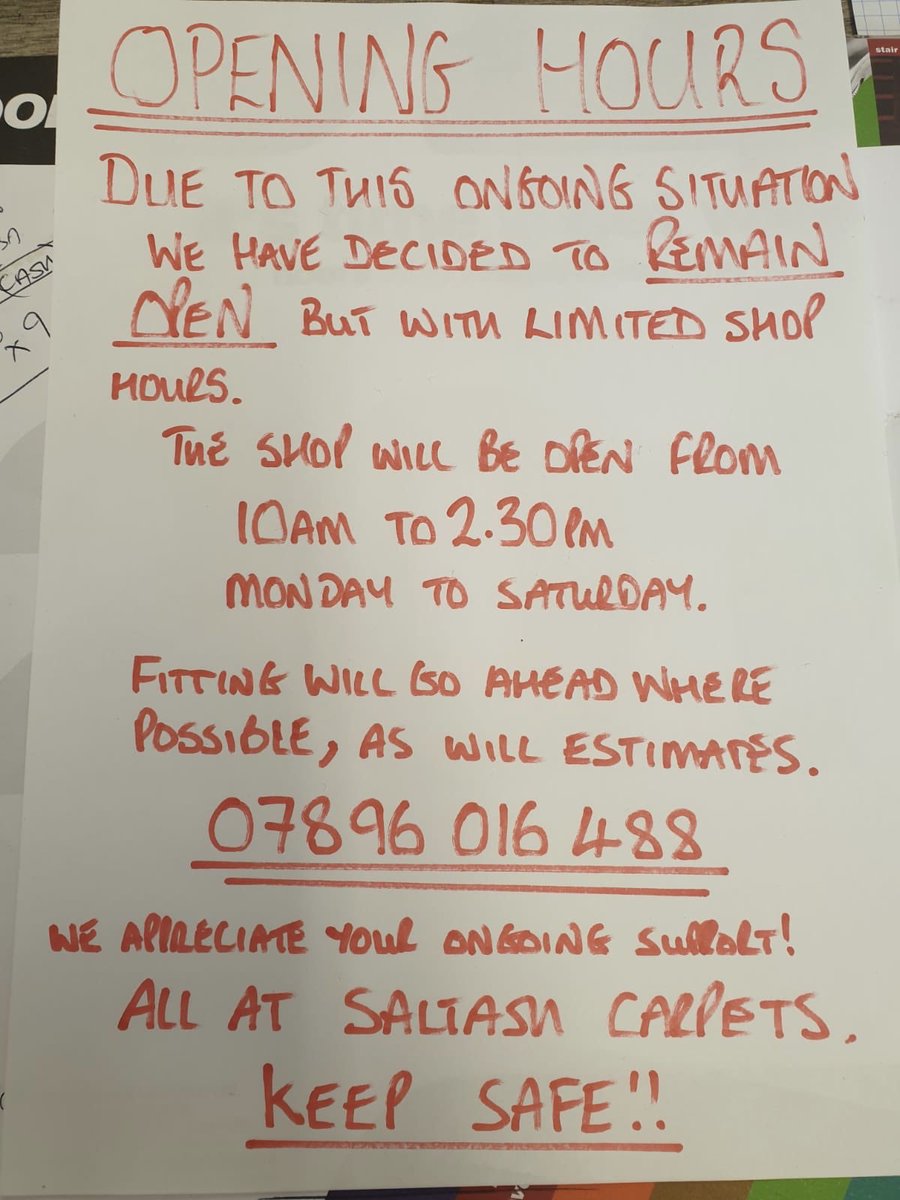 OPENING HOURS
DUE TO THIS ONGOING SITUATION
WE HAVE DECIDED TO REMAIN
OPEN BUT WITH LIMITED SHOP
HOURS.
THE SHOP WILL BE OPEN FROM
10AM TO 2.30PM
MONDAY TO SATURDAY.
FITTING WILL GO AHEAD WHERE
POSSIBLE, AS WILL ESTIMATES.
07896 016 488
WE APPRECIATE YOUR ONGOING SUPPORT!
ALL AT SALTASH CARPETS.
KEEP SAFE!!
stair
CASH
x 9